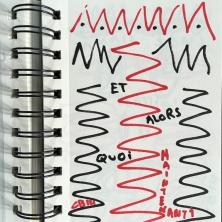 ET
ALORS
QUOI
MAINTENANT?